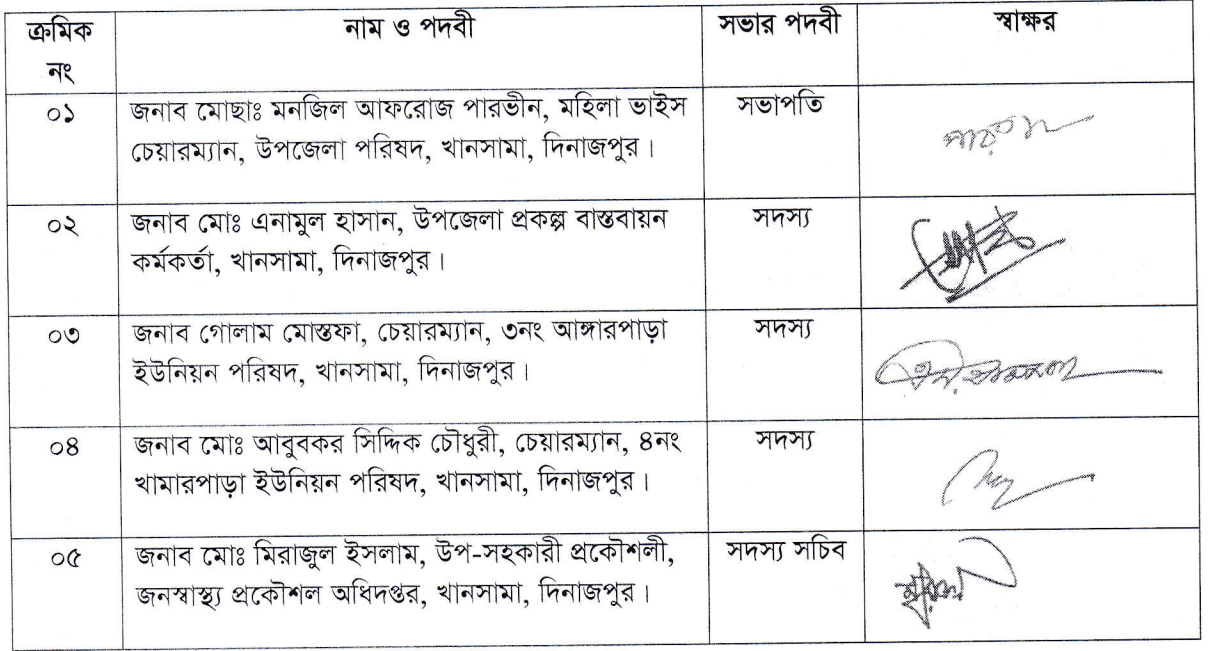 ক্রমিক নাম ও পদবী সভার পদবী স্বাক্ষর
নং
০১ জনাব মোছাঃ মনজিল আফরোজ পারভীন, মহিলা ভাইস সভাপতি
চেয়ারম্যান, উপজেলা পরিষদ, খানসামা, দিনাজপুর।
০২ জনাব মোঃ এনামুল হাসান, উপজেলা প্রকল্প বাস্তবায়ন সদস্য
কর্মকর্তা, খানসামা, দিনাজপুর।
০৩ জনাব গোলাম মোস্তফা, চেয়ারম্যান, ৩নং আঙ্গারপাড়া সদস্য
ইউনিয়ন পরিষদ, খানসামা, দিনাজপুর।
০৪ জনাব মোঃ আবুবকর সিদ্দিক চৌধুরী, চেয়ারম্যান, ৪নং সদস্য
খামারপাড়া ইউনিয়ন পরিষদ, খানসামা, দিনাজপুর।
০৫ জনাব মোঃ মিরাজুল ইসলাম, উপ-সহকারী প্রকৌশলী, সদস্য সচিব
জনস্বাস্থ্য প্রকৌশল অধিদপ্তর, খানসামা, দিনাজপুর।